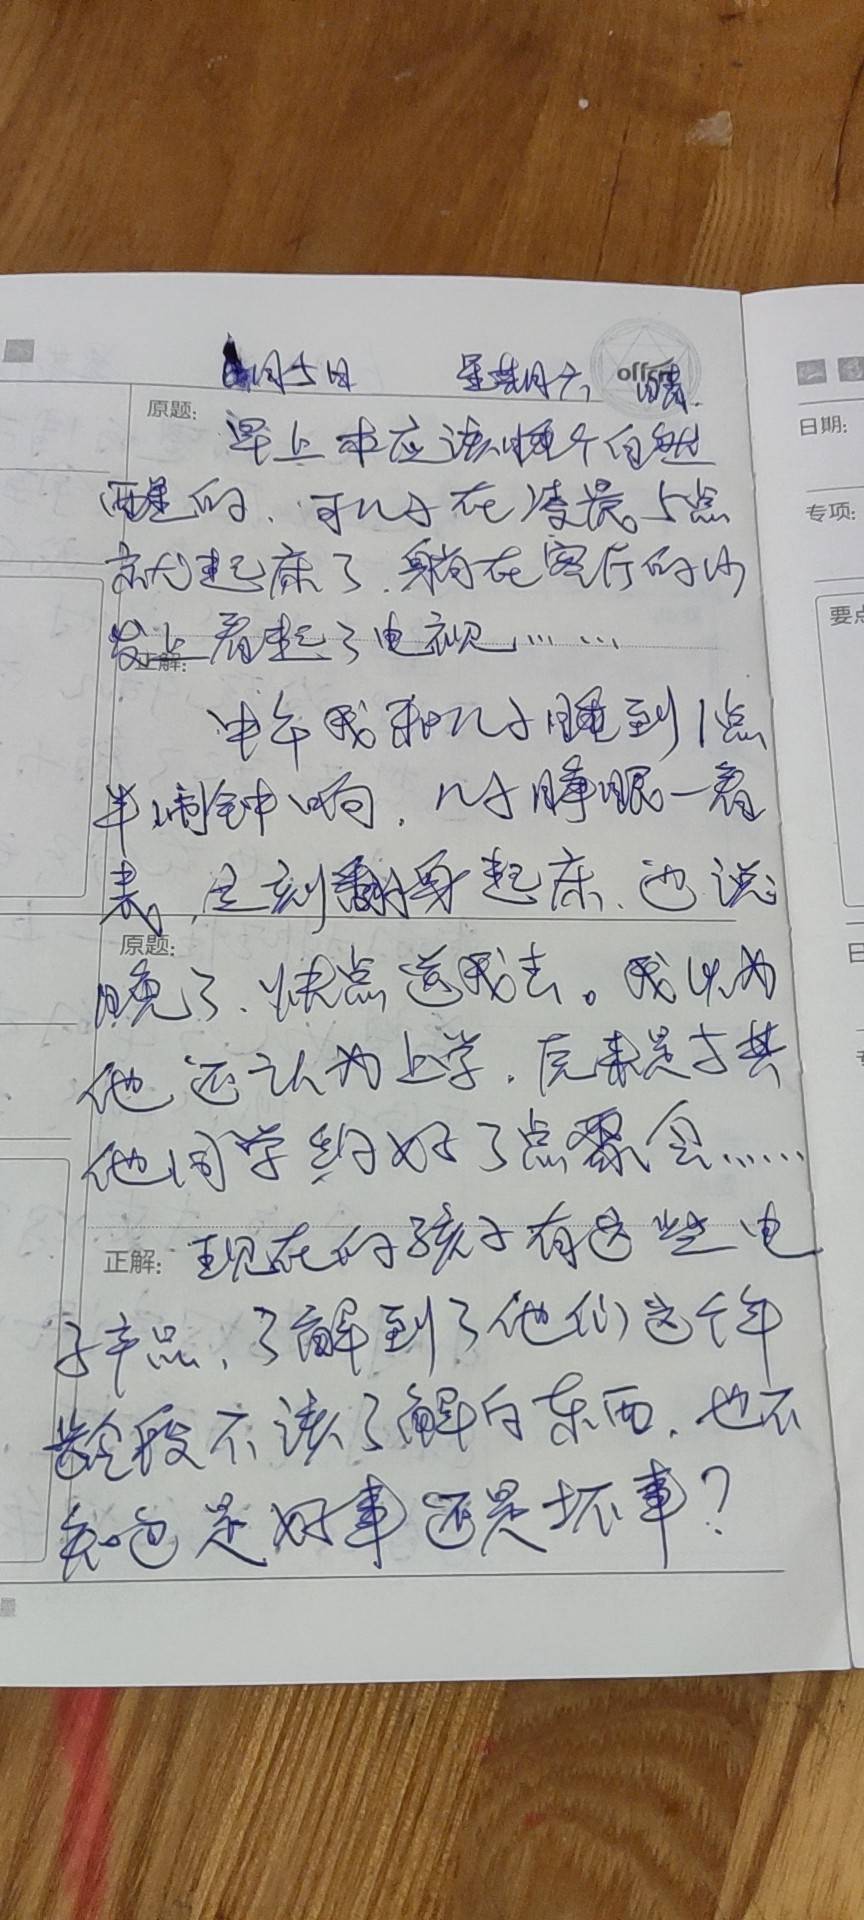 月5日 星期六 晴.
offcn
原题:
早上本应该睡个自然
日期:
醒的、可儿子在凌晨5点
专项:
就起床了、躺在客厅的沙
发上看起了电视……
要点
正解:
中午我和儿子睡到1点
半闹钟响,儿子睁眼一看
表,立刻翻身起床、还说
原题:
晚了、快点送我去。我以为
他还认为上学,原来是与其
他同学约好了点聚会……
正解:
现在的孩子有这些电
子产品,了解到了他们这个年
龄段不该了解的东西,也不
知道是好事还是坏事?